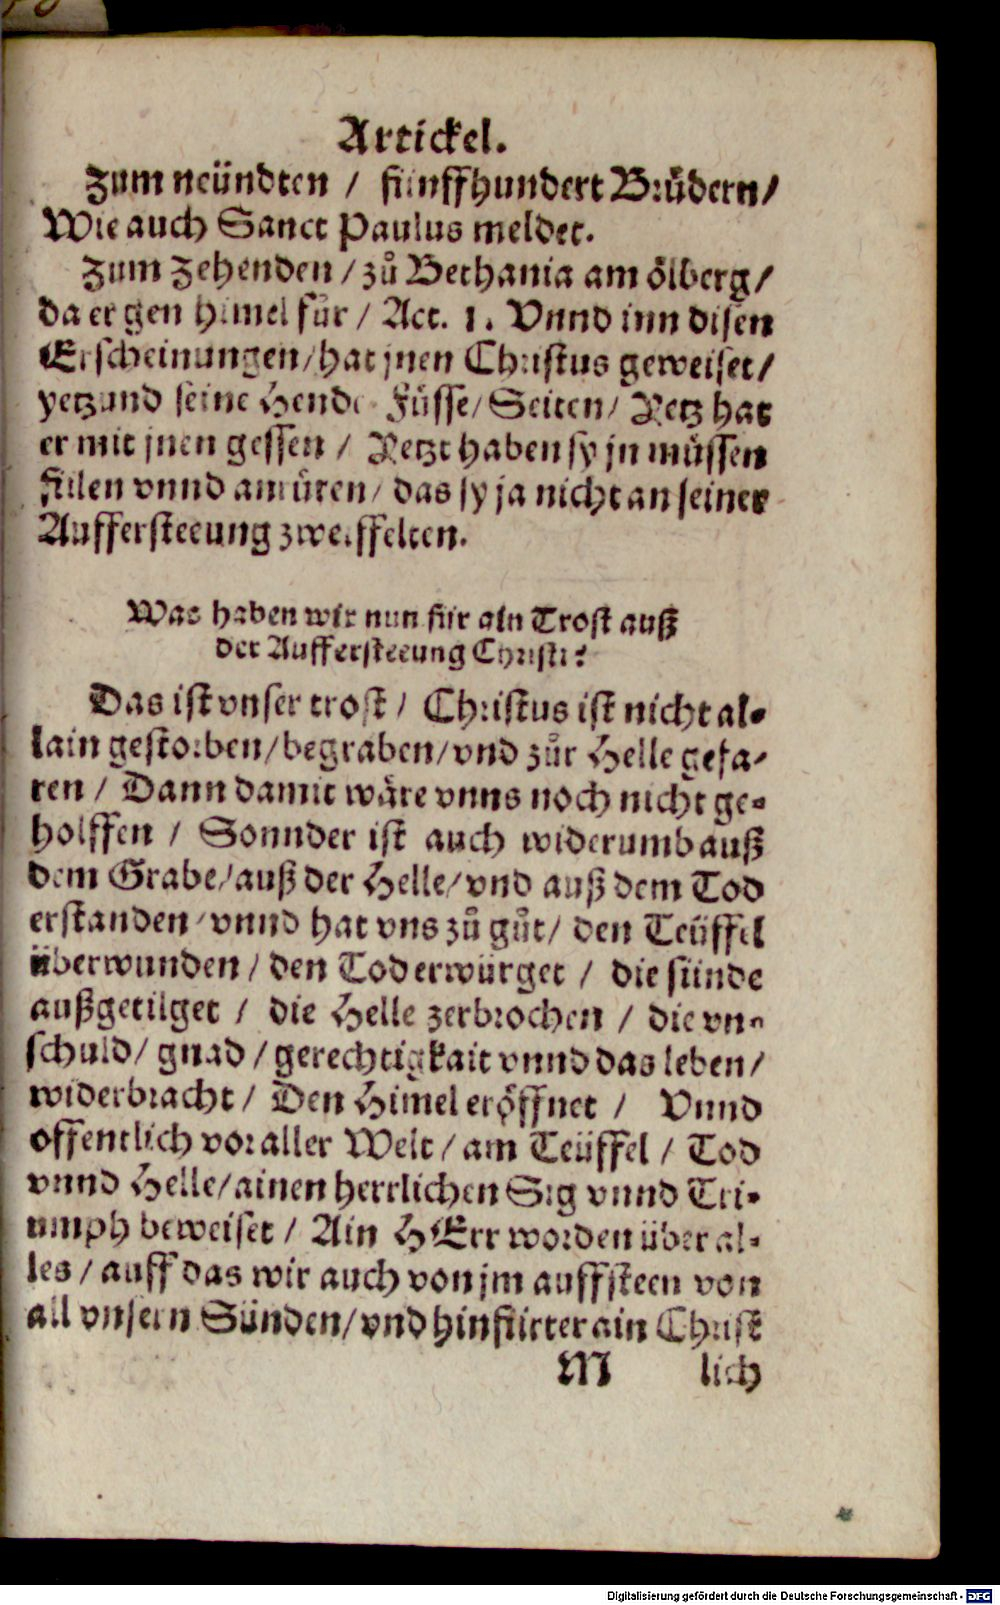 Artickel.
Zum neündten / fünffhundert Brüdern /
Wie auch Sanct Paulus meldet.
Zum Zehenden / zů Bethania am ölberg /
da er gen Himel fůr / Act. 1. Vnnd inn disen
Erscheinungen / hat jnen Christus geweiset /
yetzund seine Hende Füsse / Seiten / Yetz hat
er mit jnen gessen / Yetzt haben sy jn müssen
fülen vnnd anrüren / das sy ja nicht an seiner
Aufferst­eeung zweiffelten.
Was haben wir nun für ain Trost auß
der Auffersteeung Christi?
Das ist vnser trost / Christus ist nicht al-
lain gestorben / begraben / vnd zůr Helle gefa-
ren / Dann damit wäre vnns noch nicht ge-
holffen / Sonnder ist auch widerumb auß
dem Grabe / auß der Helle / vnd auß dem Tod
erstanden / vnnd hat vns zů gůt / den Teüffel
überwunden / den Tod erwürget / die sünde
außgetilget / die Helle zerbrochen / die vn-
schuld / gnad / gerechtigkait vnnd das leben /
widerbracht / Den Himel eröffnet / Vnnd
offentlich vor aller Welt / am Teüffel / Tod
vnnd Helle / ainen herrlichen Sig vnnd Tri-
umph beweiset / Ain HErr worden über al-
les / auff das wir auch von jm auffsteen von
all vnsern Sünden / vnd hinfürter ain Christ
M lich
Digitalisierung gefördert durch die Deutsche Forschungsgemeinschaft - DFG